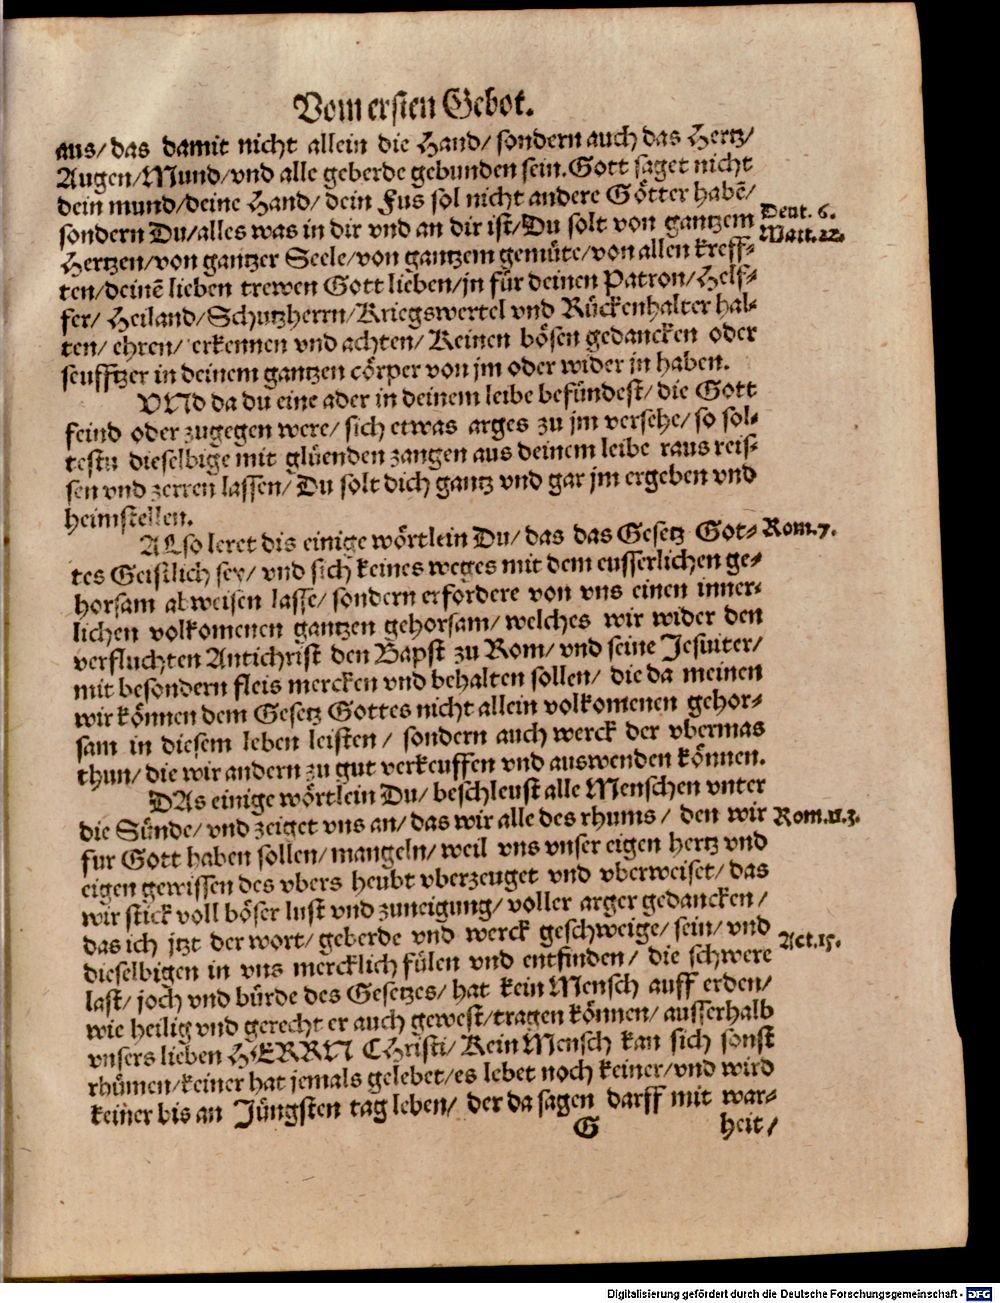 Vom ersten Gebot.
aus/ das damit nicht allein die Hand/ sondern auch das Hertz/
Augen/ Mund/ vnd alle geberde gebunden sein. Gott saget nicht
dein mund/ deine Hand/ dein Fus sol nicht andere Götter habē/
sondern Du/ alles was in dir vnd an dir ist/ Du solt von gantzem
Deut. 6.
Matt. 22.
Hertzen/ von gantzer Seele/ von gantzem gemüte/ von allen kreff-
ten/ deinē lieben trewen Gott lieben/ jn für deinen Patron/ Helf-
fer/ Heiland/ Schutzherrn/ Kriegswertel vnd Rückenhalter hal-
ten/ ehren/ erkennen vnd achten/ Keinen bösen gedancken oder
seufftzer in deinem gantzen cörper von jm oder wider jn haben.
VNd da du eine ader in deinem leibe befündest/ die Gott
feind oder zugegen were/ sich etwas arges zu jm versehe/ so sol-
testu dieselbige mit glüenden zangen aus deinem leibe raus reis-
sen vnd zerren lassen/ Du solt dich gantz vnd gar jm ergeben vnd
heimstellen.
ALso leret dis einige wörtlein Du/ das das Gesetz Got-
Rom. 7.
tes Geistlich sey/ vnd sich keines weges mit dem eusserlichen ge-
horsam abweisen lasse/ sondern erfordere von vns einen inner-
lichen volkomenen gantzen gehorsam/ welches wir wider den
verfluchten Antichrist den Bapst zu Rom/ vnd seine Jesuiter/
mit besondern fleis mercken vnd behalten sollen/ die da meinen
wir können dem Gesetz Gottes nicht allein volkomenen gehor-
sam in diesem leben leisten/ sondern auch werck der vbermas
thun/ die wir andern zu gut verkeuffen vnd auswenden können.
DAs einige wörtlein Du/ beschleust alle Menschen vnter
die Sünde/ vnd zeiget vns an/ das wir alle des rhums/ den wir
Rom. 11. 3.
fur Gott haben sollen/ mangeln/ weil vns vnser eigen hertz vnd
eigen gewissen des vbers heubt vberzeuget vnd vberweiset/ das
wir stick voll böser lust vnd zuneigung/ voller arger gedancken/
das ich jtzt der wort/ geberde vnd werck geschweige/ sein/ vnd
Act. 15.
dieselbigen in vns mercklich fülen vnd entfinden/ die schwere
last/ joch vnd bürde des Gesetzes/ hat kein Mensch auff erden/
wie heilig vnd gerecht er auch gewest/ tragen können/ ausserhalb
vnsers lieben HERRN CHristi/ Kein Mensch kan sich sonst
rhümen/ keiner hat jemals gelebet/ es lebet noch keiner/ vnd wird
keiner bis an Jüngsten tag leben/ der da sagen darff mit war-
G
heit/
Digitalisierung gefördert durch die Deutsche Forschungsgemeinschaft - DFG